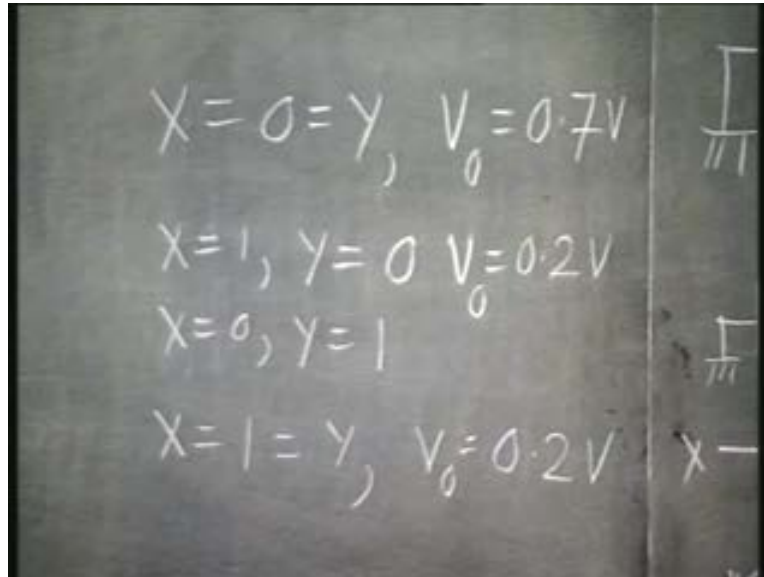 X = 0 = Y, V₀ = 0.7V
X = 1, Y = 0 V₀ = 0.2V
X = 0, Y = 1
X = 1 = Y, V₀ = 0.2V
X